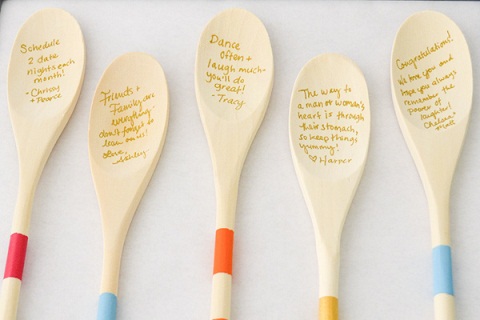 Schedule
2 date
nights each
month!
- Chrissy
+
Friends +
Family are
everything
don't forget to
lean on us!
love,
Ashley
Dance
often +
laugh much-
you'll do
great!
- Tracy
The way to
a man or woman's
heart is through
their stomach,
so keep things
yummy!
♡ Harper
Congratulations!
We love you and
hope you always
remember the
power of
laughter!
Chelsea
+